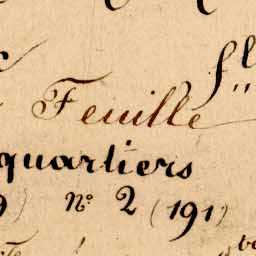 Feuille
quartiers
9) Nº 2 (191)